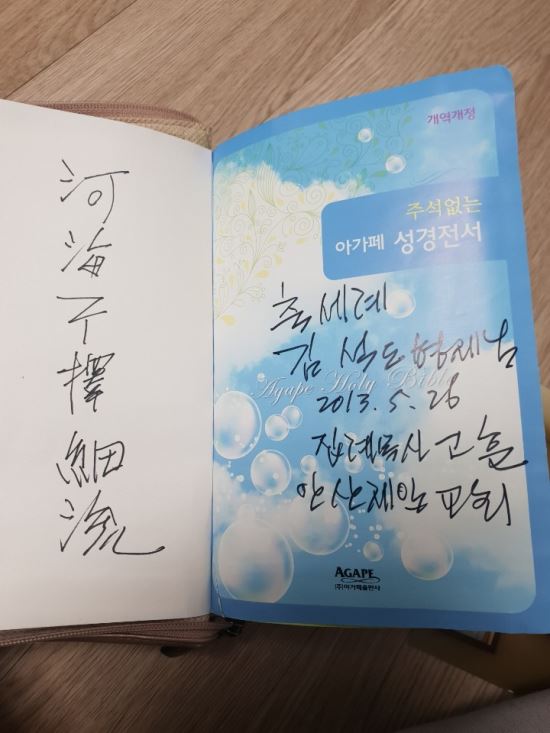 河海不擇細流
개역개정
주석없는
아가페 성경전서
축 세례
김석도 형제님
Agape Holy Bible
2013. 5. 26
집례목사 고훈
안산제일교회
AGAPE
(주)아가페출판사